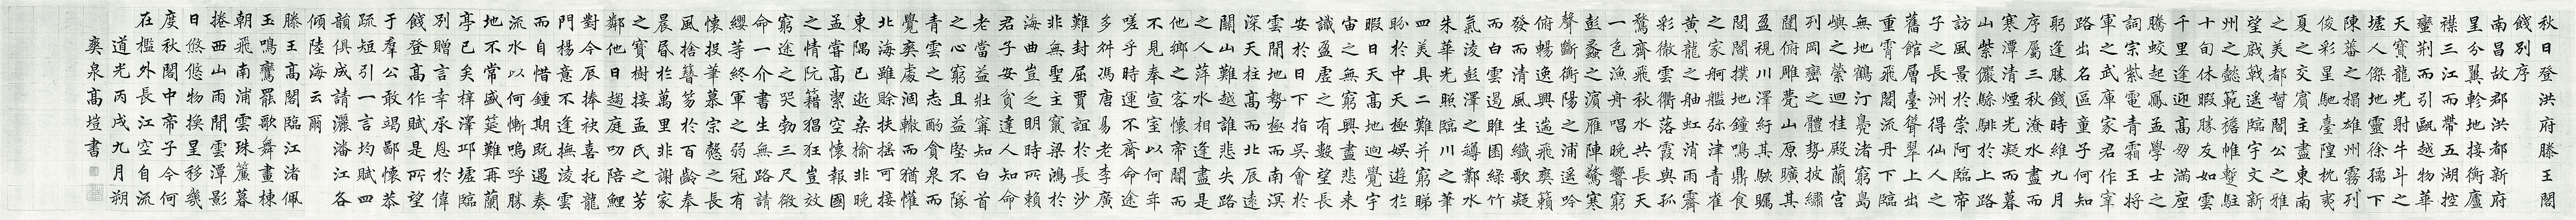 秋日登洪府滕王閣
餞別序
南昌故郡洪都新府
星分翼軫地接衡廬
襟三江而帶五湖控
蠻荊而引甌越物華
天寶龍光射牛斗之
墟人傑地靈徐孺下
陳蕃之榻雄州霧列
俊彩星馳臺隍枕夷
夏之交賓主盡東南
之美都督閻公之雅
望棨戟遙臨宇文新
州之懿範襜帷暫駐
十旬休暇勝友如雲
千里逢迎高朋滿座
騰蛟起鳳孟學士之
詞宗紫電青霜王將
軍之武庫家君作宰
路出名區童子何知
躬逢勝餞時維九月
序屬三秋潦水盡而
寒潭清煙光凝而暮
山紫儼驂騑於上路
訪風景於崇阿臨帝
子之長洲得仙人之
舊館層臺聳翠上出
重霄飛閣流丹下臨
無地鶴汀鳧渚窮島
嶼之縈迴桂殿蘭宮
列岡巒之體勢披繡
闥俯雕甍山原曠其
盈視川澤紆其駭矚
閭閻撲地鐘鳴鼎食
之家舸艦弥津青雀
黃龍之舳虹消雨霽
彩徹雲衢落霞與孤
鶩齊飛秋水共長天
一色漁舟唱晚響窮
彭蠡之濱雁陣驚寒
聲斷衡陽之浦遥吟
俯暢逸興遄飛爽籟
發而清風生纖歌凝
而白雲遏睢園綠竹
氣淩彭澤之罇鄴水
朱華光照臨川之筆
四美具二難并窮睇
盼於中天極娛遊於
暇日天高地迥覺宇
宙之無窮興盡悲來
識盈虛之有數望長
安於日下指吳會於
雲間地勢極而南溟
深天柱高而北辰遠
關山難越誰悲失路
之人萍水相逢盡是
他鄉之客懷帝閽而
不見奉宣室以何年
嗟乎時運不齊命途
多舛馮唐易老李廣
難封屈賈誼於長沙
非無聖主竄梁鴻於
海曲豈乏明時所賴
君子安貧達人知命
老當益壯甯知白首
之心窮且益堅不墜
青雲之志酌貪泉而
覺爽處涸轍而猶懽
北海雖賒扶搖可接
東隅已逝桑榆非晚
孟嘗高潔空懷報國
之情阮籍猖狂豈效
窮途之哭勃三尺微
命一介書生無路請
纓等終軍之弱冠有
懷投筆慕宗愨之長
風捨簪笏於百齡奉
晨昏於萬里非謝家
之寶樹接孟氏之芳
鄰他日趨庭叨陪鯉
對今辰捧袂喜托龍
門楊意不逢撫淩雲
而自惜鍾期既遇奏
流水以何慚嗚呼勝
地不常盛筵難再蘭
亭已矣梓澤邱墟臨
別贈言幸承恩於偉
餞登高作賦是所望
于羣公敢竭鄙懷恭
疏短引一言均賦四
韻俱成請灑潘江各
傾陸海云爾
滕王高閣臨江渚佩
玉鳴鸞罷歌舞畫棟
朝飛南浦雲珠簾暮
捲西山雨閒雲潭影
日悠悠物換星移幾
度秋閣中帝子今何
在檻外長江空自流
道光丙戌九月朔
奭泉高塏書